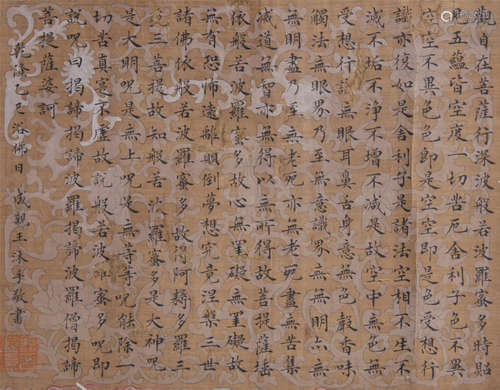 觀自在菩薩行深波般若羅蜜多時照
見五蘊皆空度一切苦厄舍利子色不異
空空不異色色即是空空即是色受想行
識亦復如是舍利子是諸法空相不生不
滅不垢不淨不增不減是故空中無色無
受想行識無眼耳鼻舌身意無色聲香味
觸法無眼界乃至無意識界無無明亦無
無明盡乃至無老死亦無老死盡無苦集
滅道無智亦無得以無所得故菩提薩埵
依般若波羅蜜多故心無罣礙無罣礙故
無有恐怖遠離顛倒夢想究竟涅槃三世
諸佛依般若波羅蜜多故得阿耨多羅三
藐三菩提故知般若波羅蜜多是大神呪
是大明呪是無上呪是無等等呪能除一
切苦真實不虛故說般若波羅蜜多呪即
說呪曰揭諦揭諦波羅揭諦波羅僧揭諦
菩提薩婆訶
乾隆乙巳浴佛日成親王沐手敬書